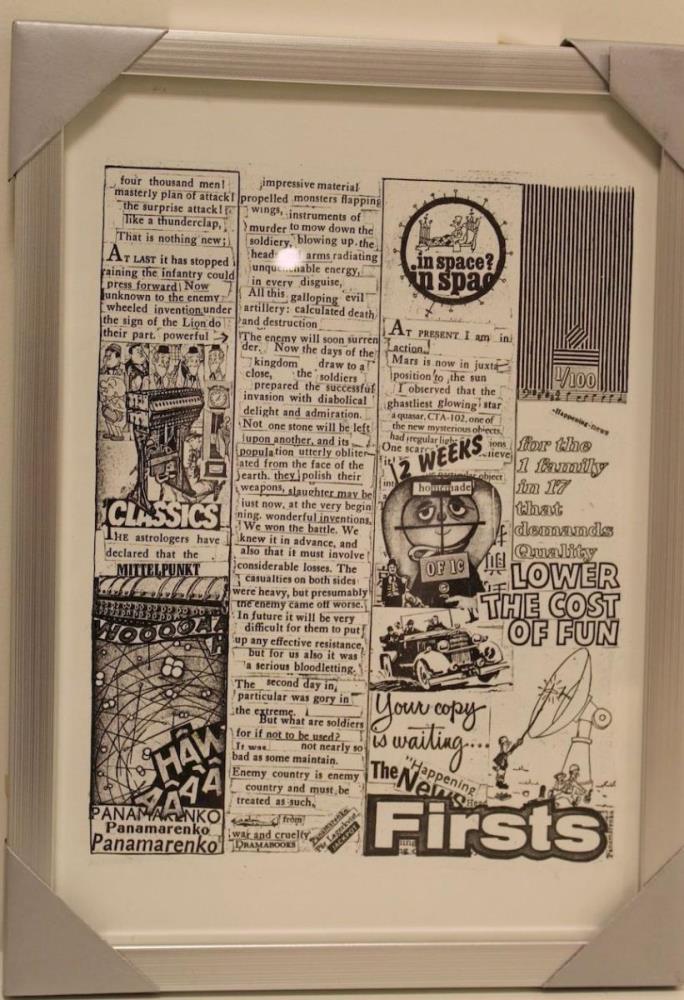 four thousand men!
masterly plan of attack!
the surprise attack!
like a thunderclap,
That is nothing new;
AT LAST it has stopped
raining the infantry could
press forward! Now
unknown to the enemy
wheeled invention under
the sign of the Lion do
their part. powerful →
CLASSICS
THE astrologers have
declared that the
MITTELPUNKT
WOOOOAA
HÂW
ÂÂÂÂ
PANAMARENKO
Panamarenko
Panamarenko
impressive material
propelled monsters flapping
wings, instruments of
murder to mow down the
soldiery, blowing up the
heads arms radiating
unquenchable energy,
in every disguise,
All this galloping evil
artillery: calculated death
and destruction
The enemy will soon surren
der. Now the days of the
kingdom draw to a
close, the soldiers
prepared the successful
invasion with diabolical
delight and admiration.
Not one stone will be left
upon another, and its
population utterly obliter
ated from the face of the
earth. they polish their
weapons, slaughter may be
just now, at the very begin
ning. wonderful inventions,
We won the battle. We
knew it in advance, and
also that it must involve
considerable losses. The
casualties on both sides
were heavy, but presumably
the enemy came off worse.
In future it will be very
difficult for them to put
up any effective resistance,
but for us also it was
a serious bloodletting.
The second day in
particular was gory in
the extreme.
But what are soldiers
for if not to be used?
It was not nearly so
bad as some maintain.
Enemy country is enemy
country and must be
treated as such.
from
war and cruelty
DRAMABOOKS
Panamarenko
in space?
n spac
AT PRESENT I am in
action.
Mars is now in juxta
position to the sun
I observed that the
ghastliest glowing star
a quasar, CTA-102, one of
the new mysterious objects,
had irregular
One
2 WEEKS
object
homemade
OF 1c
Your copy
is waiting...
The "Happening
News
Firsts
1/100
-Happening-news
for the
1 family
in 17
that
demands
Quality
LOWER
THE COST
OF FUN
Panamarenko